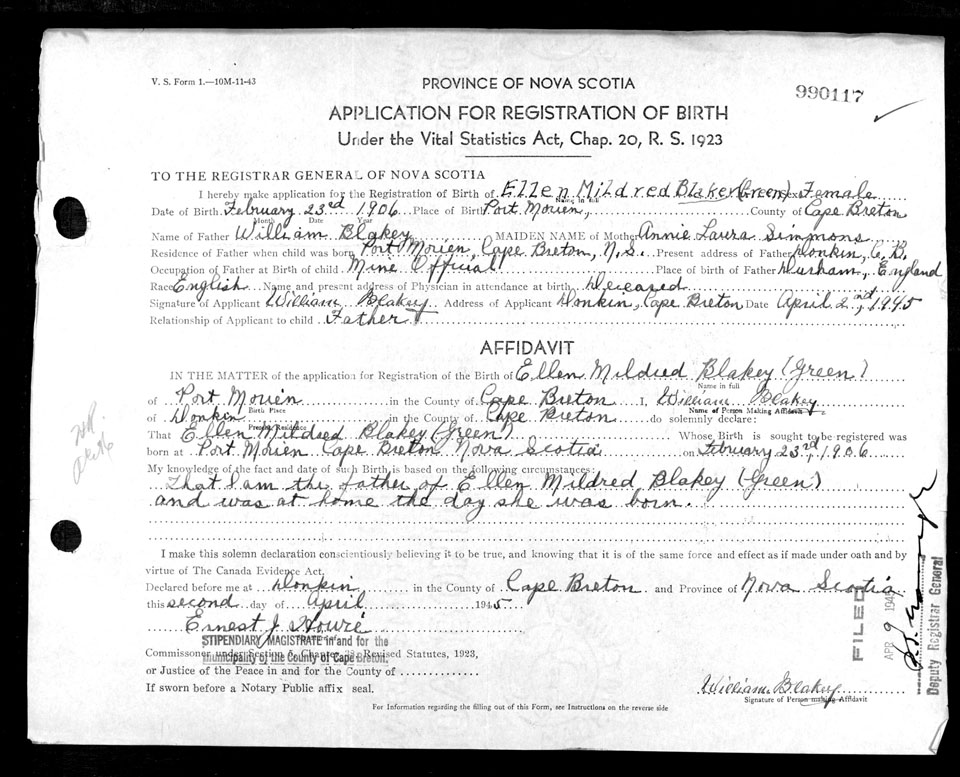 V. S. Form 1.—10M-11-43
PROVINCE OF NOVA SCOTIA
990117
APPLICATION FOR REGISTRATION OF BIRTH
Under the Vital Statistics Act, Chap. 20, R. S. 1923
TO THE REGISTRAR GENERAL OF NOVA SCOTIA
I hereby make application for the Registration of Birth of Ellen Mildred Blakey (Green) Sex Female
Name in full
Date of Birth February 23rd 1906 Place of Birth Port Morien, County of Cape Breton
Month Date Year
Name of Father William Blakey MAIDEN NAME of Mother Annie Laura Simmons
Residence of Father when child was born Port Morien, Cape Breton, N.S. Present address of Father Donkin, C.B.
Occupation of Father at Birth of child Mine Official Place of birth of Father Durham, England
Race English Name and present address of Physician in attendance at birth Deceased
Signature of Applicant William Blakey Address of Applicant Donkin, Cape Breton Date April 2nd, 1945
Relationship of Applicant to child Father
AFFIDAVIT
IN THE MATTER of the application for Registration of the Birth of Ellen Mildred Blakey (Green)
Name in full
of Port Morien in the County of Cape Breton I, William Blakey
Birth Place Name of Person Making Affidavit
of Donkin in the County of Cape Breton do solemnly declare:
Present Residence
That Ellen Mildred Blakey (Green) Whose Birth is sought to be registered was
born at Port Morien Cape Breton Nova Scotia on February 23rd, 1906
My knowledge of the fact and date of such Birth is based on the following circumstances:
that I am the father of Ellen Mildred Blakey (Green)
and was at home the day she was born.
I make this solemn declaration conscientiously believing it to be true, and knowing that it is of the same force and effect as if made under oath and by
virtue of The Canada Evidence Act.
Declared before me at Donkin in the County of Cape Breton and Province of Nova Scotia
this second day of April 1945
Ernest J. Howie
STIPENDIARY MAGISTRATE in and for the
Municipality of the County of Cape Breton.
Commissioner under Section 6, Chapter Revised Statutes, 1923,
or Justice of the Peace in and for the County of
If sworn before a Notary Public affix seal.
William Blakey
Signature of Person making Affidavit
For Information regarding the filling out of this Form, see Instructions on the reverse side
FILED
APR 9 194
Deputy Registrar General